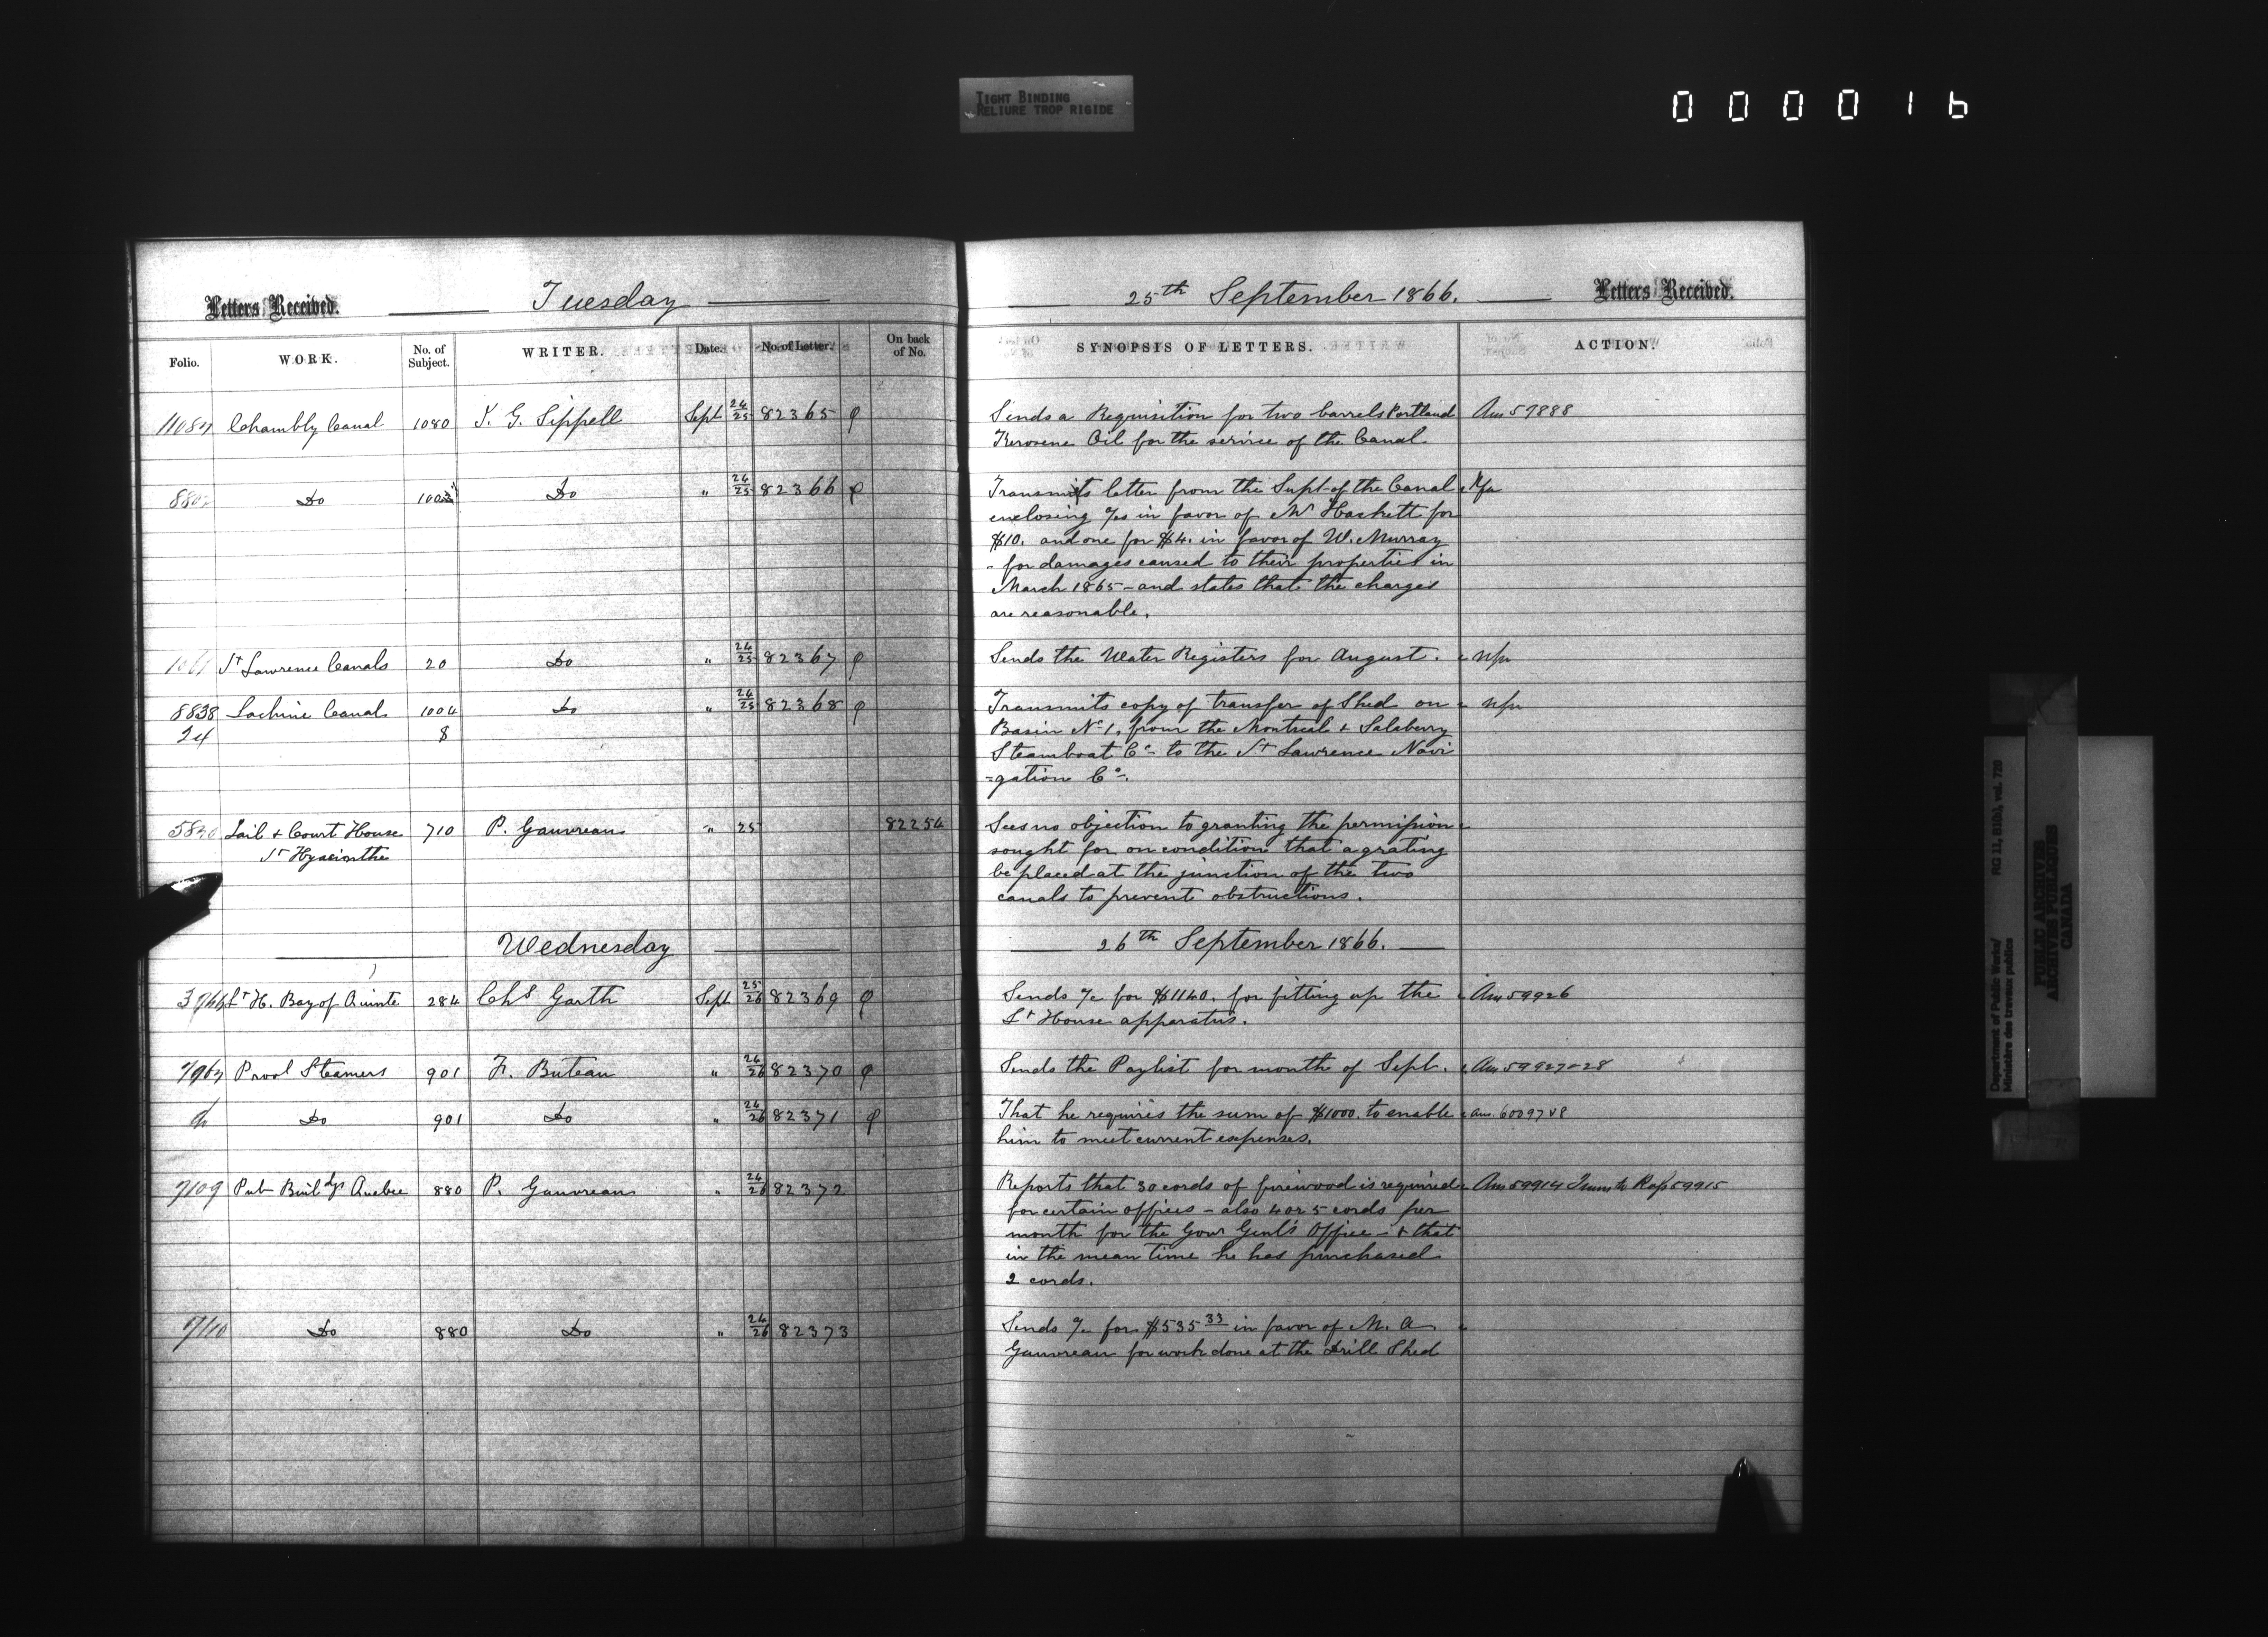 TIGHT BINDING
RELIURE TROP RIGIDE
000016
Letters Received. Tuesday
Folio. WORK. No. of Subject. WRITER. Date. No. of Letter. On back of No.
11084 Chambly Canal 1080 J. G. Sippell Sept 24/25 82365
Do Do " 24/25 82366
St Lawrence Canals 20 Do " 24/25 82367
8838 Lachine Canal 1004 Do " 24/25 82368
24 8
Jail & Court House 710 P. Gauvreau " 25 82254
St Hyacinthe
Wednesday
Lt H. Bay of Quinte 284 Chs Garth Sept 25/26 82369
7967 Provl Steamers 901 F. Buteau " 24/26 82370
do Do 901 Do " 24/26 82371
7109 Pub Buildgs Quebec 880 P. Gauvreau " 24/26 82372
7110 Do 880 Do " 24/26 82373
25th September 1866. Letters Received.
SYNOPSIS OF LETTERS. ACTION.
Sends a Requisition for two barrels Portland Ans 59888
Kerosene Oil for the service of the Canal.
Transmits letter from the Supt of the Canal Nfa
enclosing a/cs in favor of Mr Hackett for
$10. and one for $4. in favor of W. Murray
- for damages caused to their properties in
March 1865 - and states that the charges
are reasonable.
Sends the Water Registers for August. nfa
Transmits copy of transfer of Shed on nfa
Basin No 1, from the Montreal & Salaberry
Steamboat Co to the St Lawrence Navi
=gation Co.
Sees no objection to granting the permission
sought for on condition that a grating
be placed at the junction of the two
canals to prevent obstructions.
26th September 1866.
Sends a/c for $1140. for fitting up the Ans 59926
Lt House apparatus.
Sends the Paylist for month of Sept. Ans 59927-28
That he requires the sum of $1000. to enable Ans. 60097 & 8
him to meet current expenses.
Reports that 30 cords of firewood is required Ans 59914 59915
for certain offices - also 4 or 5 cords per
month for the Govr Genl's Office - & that
in the mean time he has purchased
2 cords.
Sends a/c for $535 33 in favor of M. A
Gauvreau for work done at the Drill Shed
Department of Public Works/
Ministère des travaux publics
RG 11, B1(b), vol. 728
PUBLIC ARCHIVES
ARCHIVES PUBLIQUES
CANADA